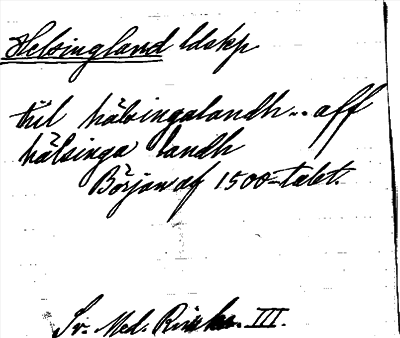 Helsingland ldskp
till hälsingalandh .. aff
hälsinga landh
Början af 1500-talet.
Sv. Med. Rimkr. III.